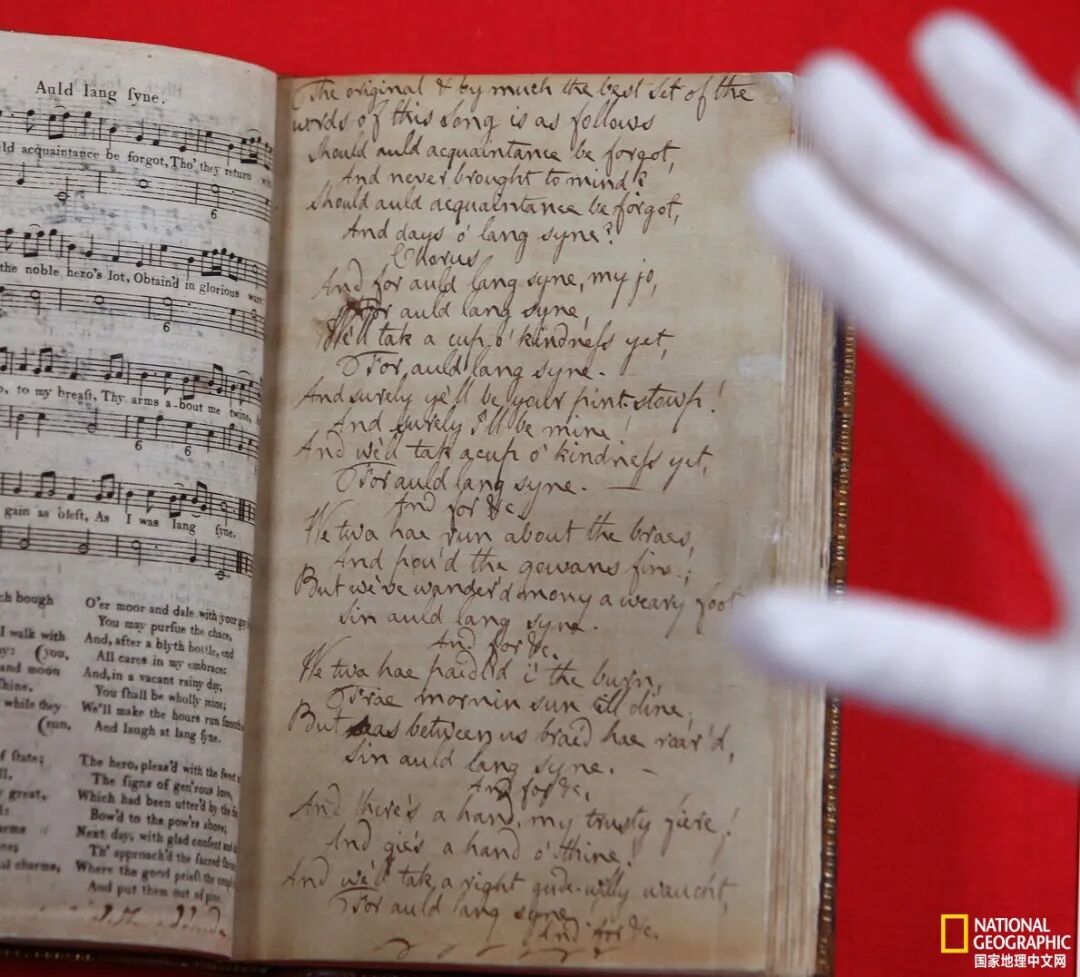 Auld lang ſyne.
ld acquaintance be forgot, Tho' they return
the noble hero's lot, Obtain'd in glorious
to my breaſt, Thy arms a-bout me twine,
gain as bleſt, As I was lang ſyne.
ch bough
I walk with
(you,
and moon
ſhine,
while they
(run.
of ſtate;
great,
al charms,
O'er moor and dale with your
You may purſue the chace,
And, after a blyth bottle, end
All cares in my embrace:
And, in a vacant rainy day,
You ſhall be wholly mine;
We'll make the hours run ſmooth
And laugh at lang ſyne.
The hero, pleas'd with the ſweet
The ſigns of gen'rous love,
Which had been utter'd by the
Bow'd to the pow'rs above;
Next day, with glad conſent and
Th' approach'd the ſacred
Where the good prieſt the
And put them out of
The original & by much the best set of the
words of this song is as follows
Should auld acquaintance be forgot,
And never brought to mind?
Should auld acquaintance be forgot,
And days o' lang syne?
Chorus
And for auld lang syne, my jo,
For auld lang syne,
We'll tak a cup o' kindneſs yet,
For auld lang syne. -
And surely ye'll be your pint-stowp!
And surely I'll be mine
And we'll tak a cup o' kindneſs yet,
For auld lang syne. —
And for &c
We twa hae run about the braes,
And pou'd the gowans fine;
But we've wander'd mony a weary foot
Sin auld lang syne.
And for &c.
We twa hae paidl'd i' the burn,
Frae mornin sun till dine;
But seas between us braid hae roar'd,
Sin auld lang syne. -
And for &c.
And there's a hand, my trusty fiere!
And gie's a hand o' thine!
And we'll tak a right gude-willy waught,
For auld lang syne
And for &c.
NATIONAL
GEOGRAPHIC
国家地理中文网